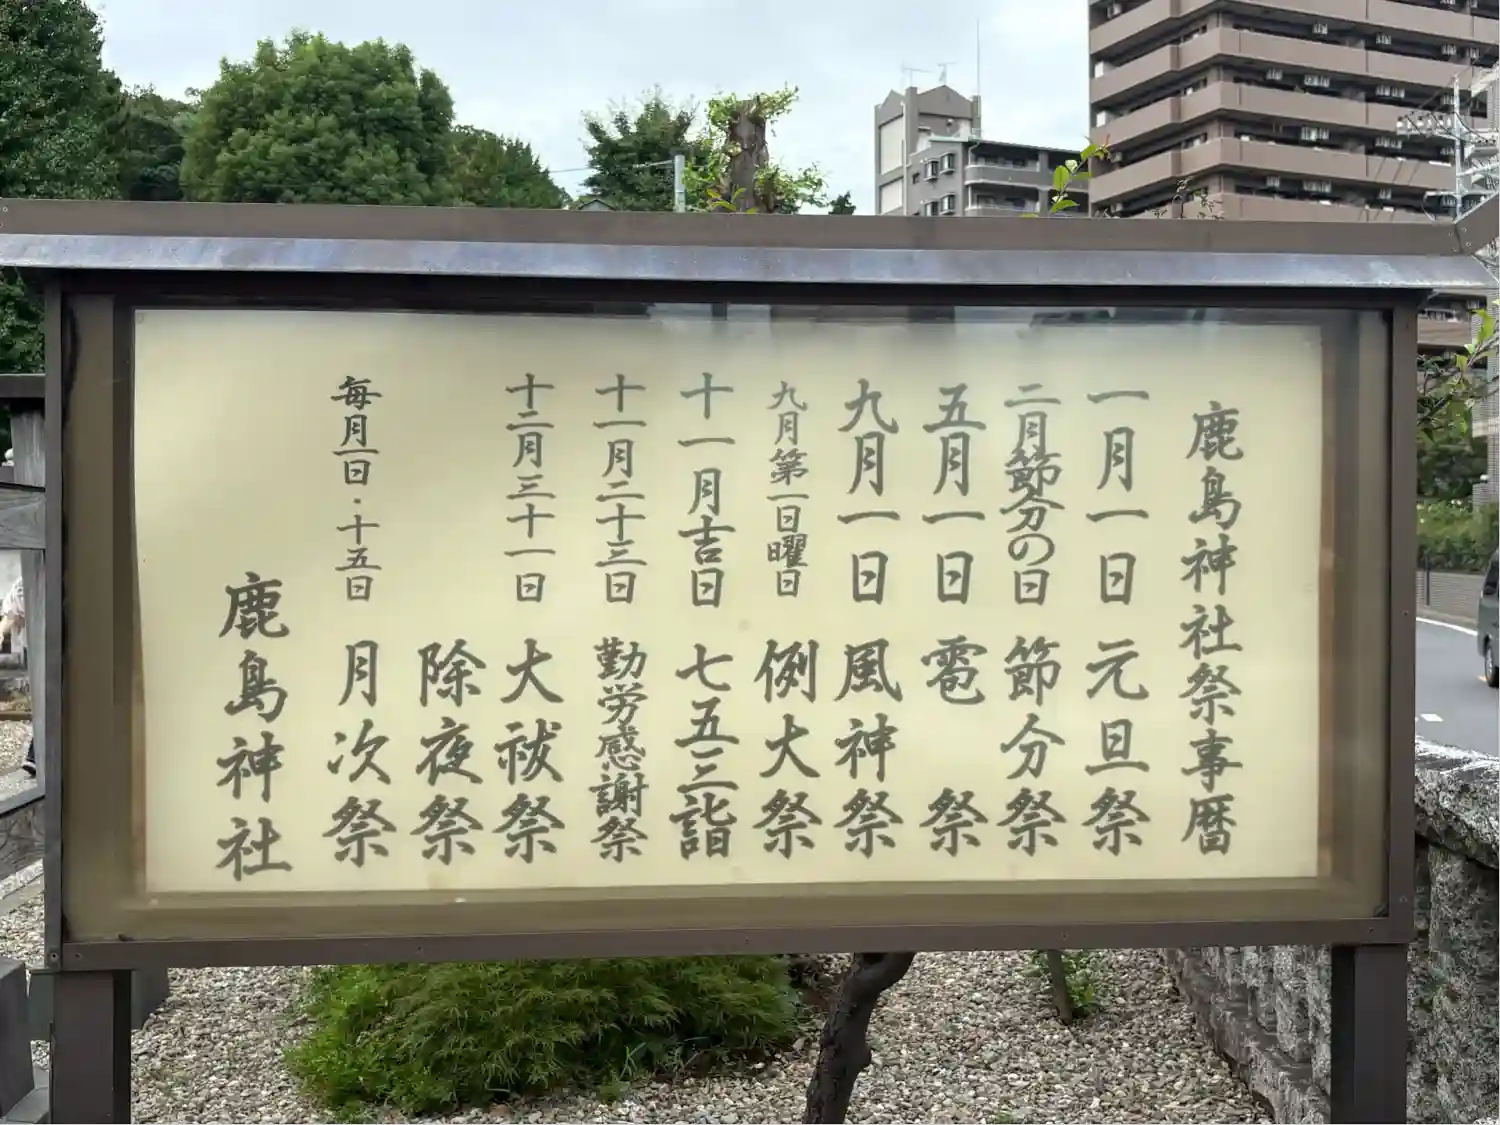 鹿島神社祭事暦
一月一日 元旦祭
二月節分の日 節分祭
五月一日 雹祭
九月一日 風神祭
九月第一日曜日 例大祭
十一月吉日 七五三詣
十一月二十三日 勤労感謝祭
十二月三十一日 大祓祭
除夜祭
毎月一日・十五日 月次祭
鹿島神社